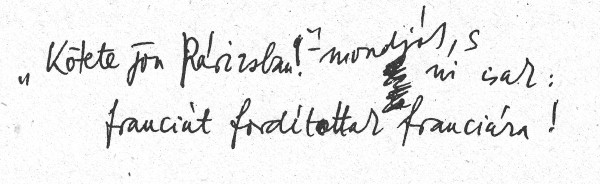 „Kötete jön Párizsban!" – mondják, s
mi csak:
franciát fordítottak franciára!